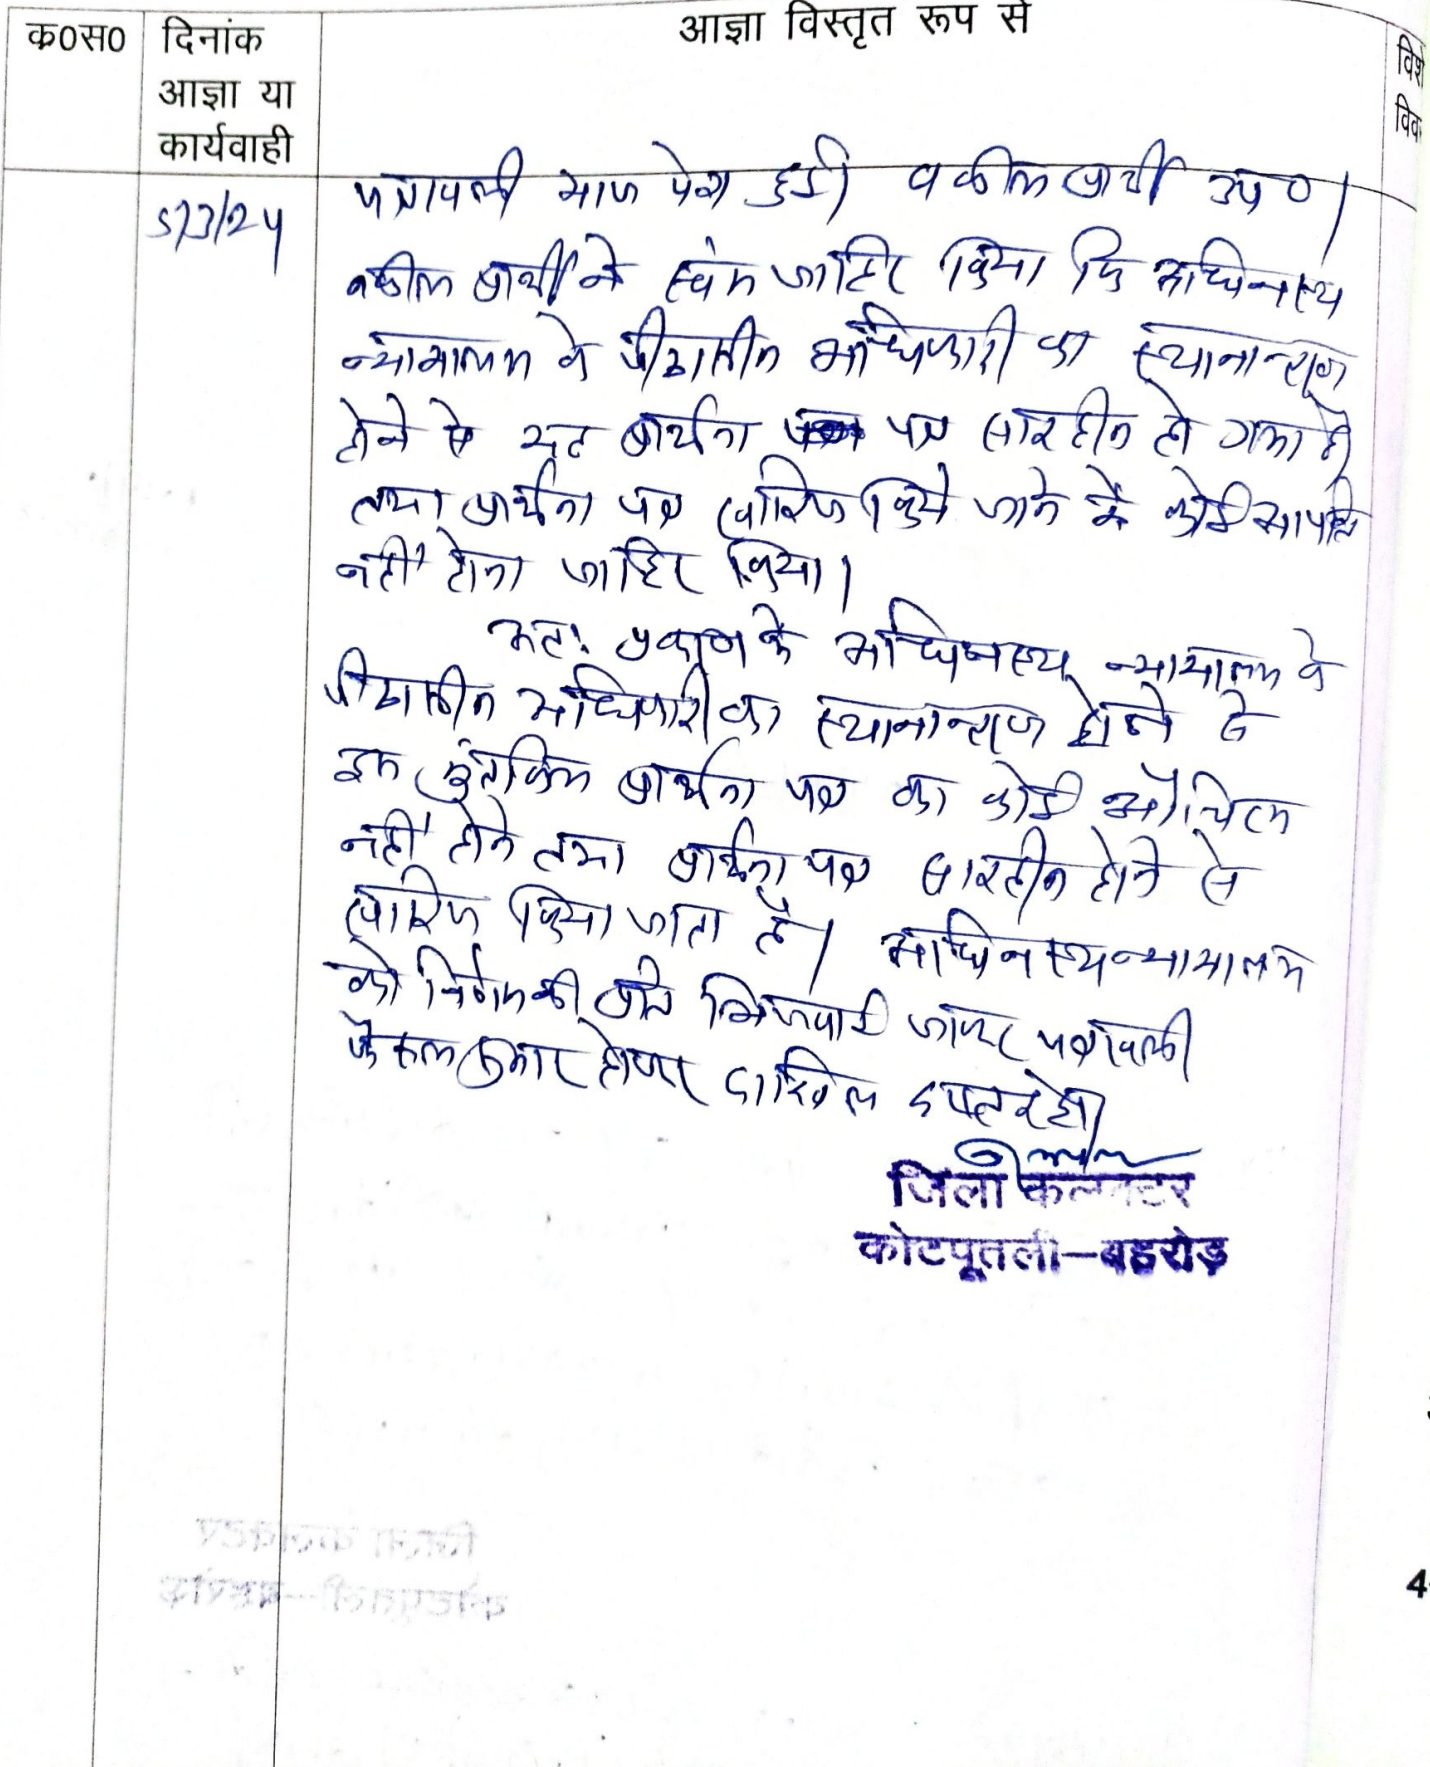 क0स0 दिनांक आज्ञा या कार्यवाही आज्ञा विस्तृत रूप से
5/3/24
पत्रावली आज पेश हुई। वकील प्रार्थी उप०।
वकील प्रार्थी ने स्वंम जाहिर किया कि अधिनस्थ
न्यायालय के पीठासीन अधिकारी का स्थानान्तरण
होने से यह प्रार्थना पत्र सारहीन हो गया है
तथा प्रार्थना पत्र खारिज किये जाने में कोई आपत्ति
नहीं होना जाहिर किया।
अतः प्रकरण के अधिनस्थ न्यायालय के
पीठासीन अधिकारी का स्थानान्तरण होने से
इस मुंतकिल प्रार्थना पत्र का कोई औचित्य
नहीं होने तथा प्रार्थना पत्र सारहीन होने से
खारिज किया जाता है। अधिनस्थ न्यायालय
को निर्णय की प्रति भिजवाई जाकर पत्रावली
फैसल शुमार होकर दाखिल दफ्तर हो।
जिला कलक्टर
कोटपूतली–बहरोड़